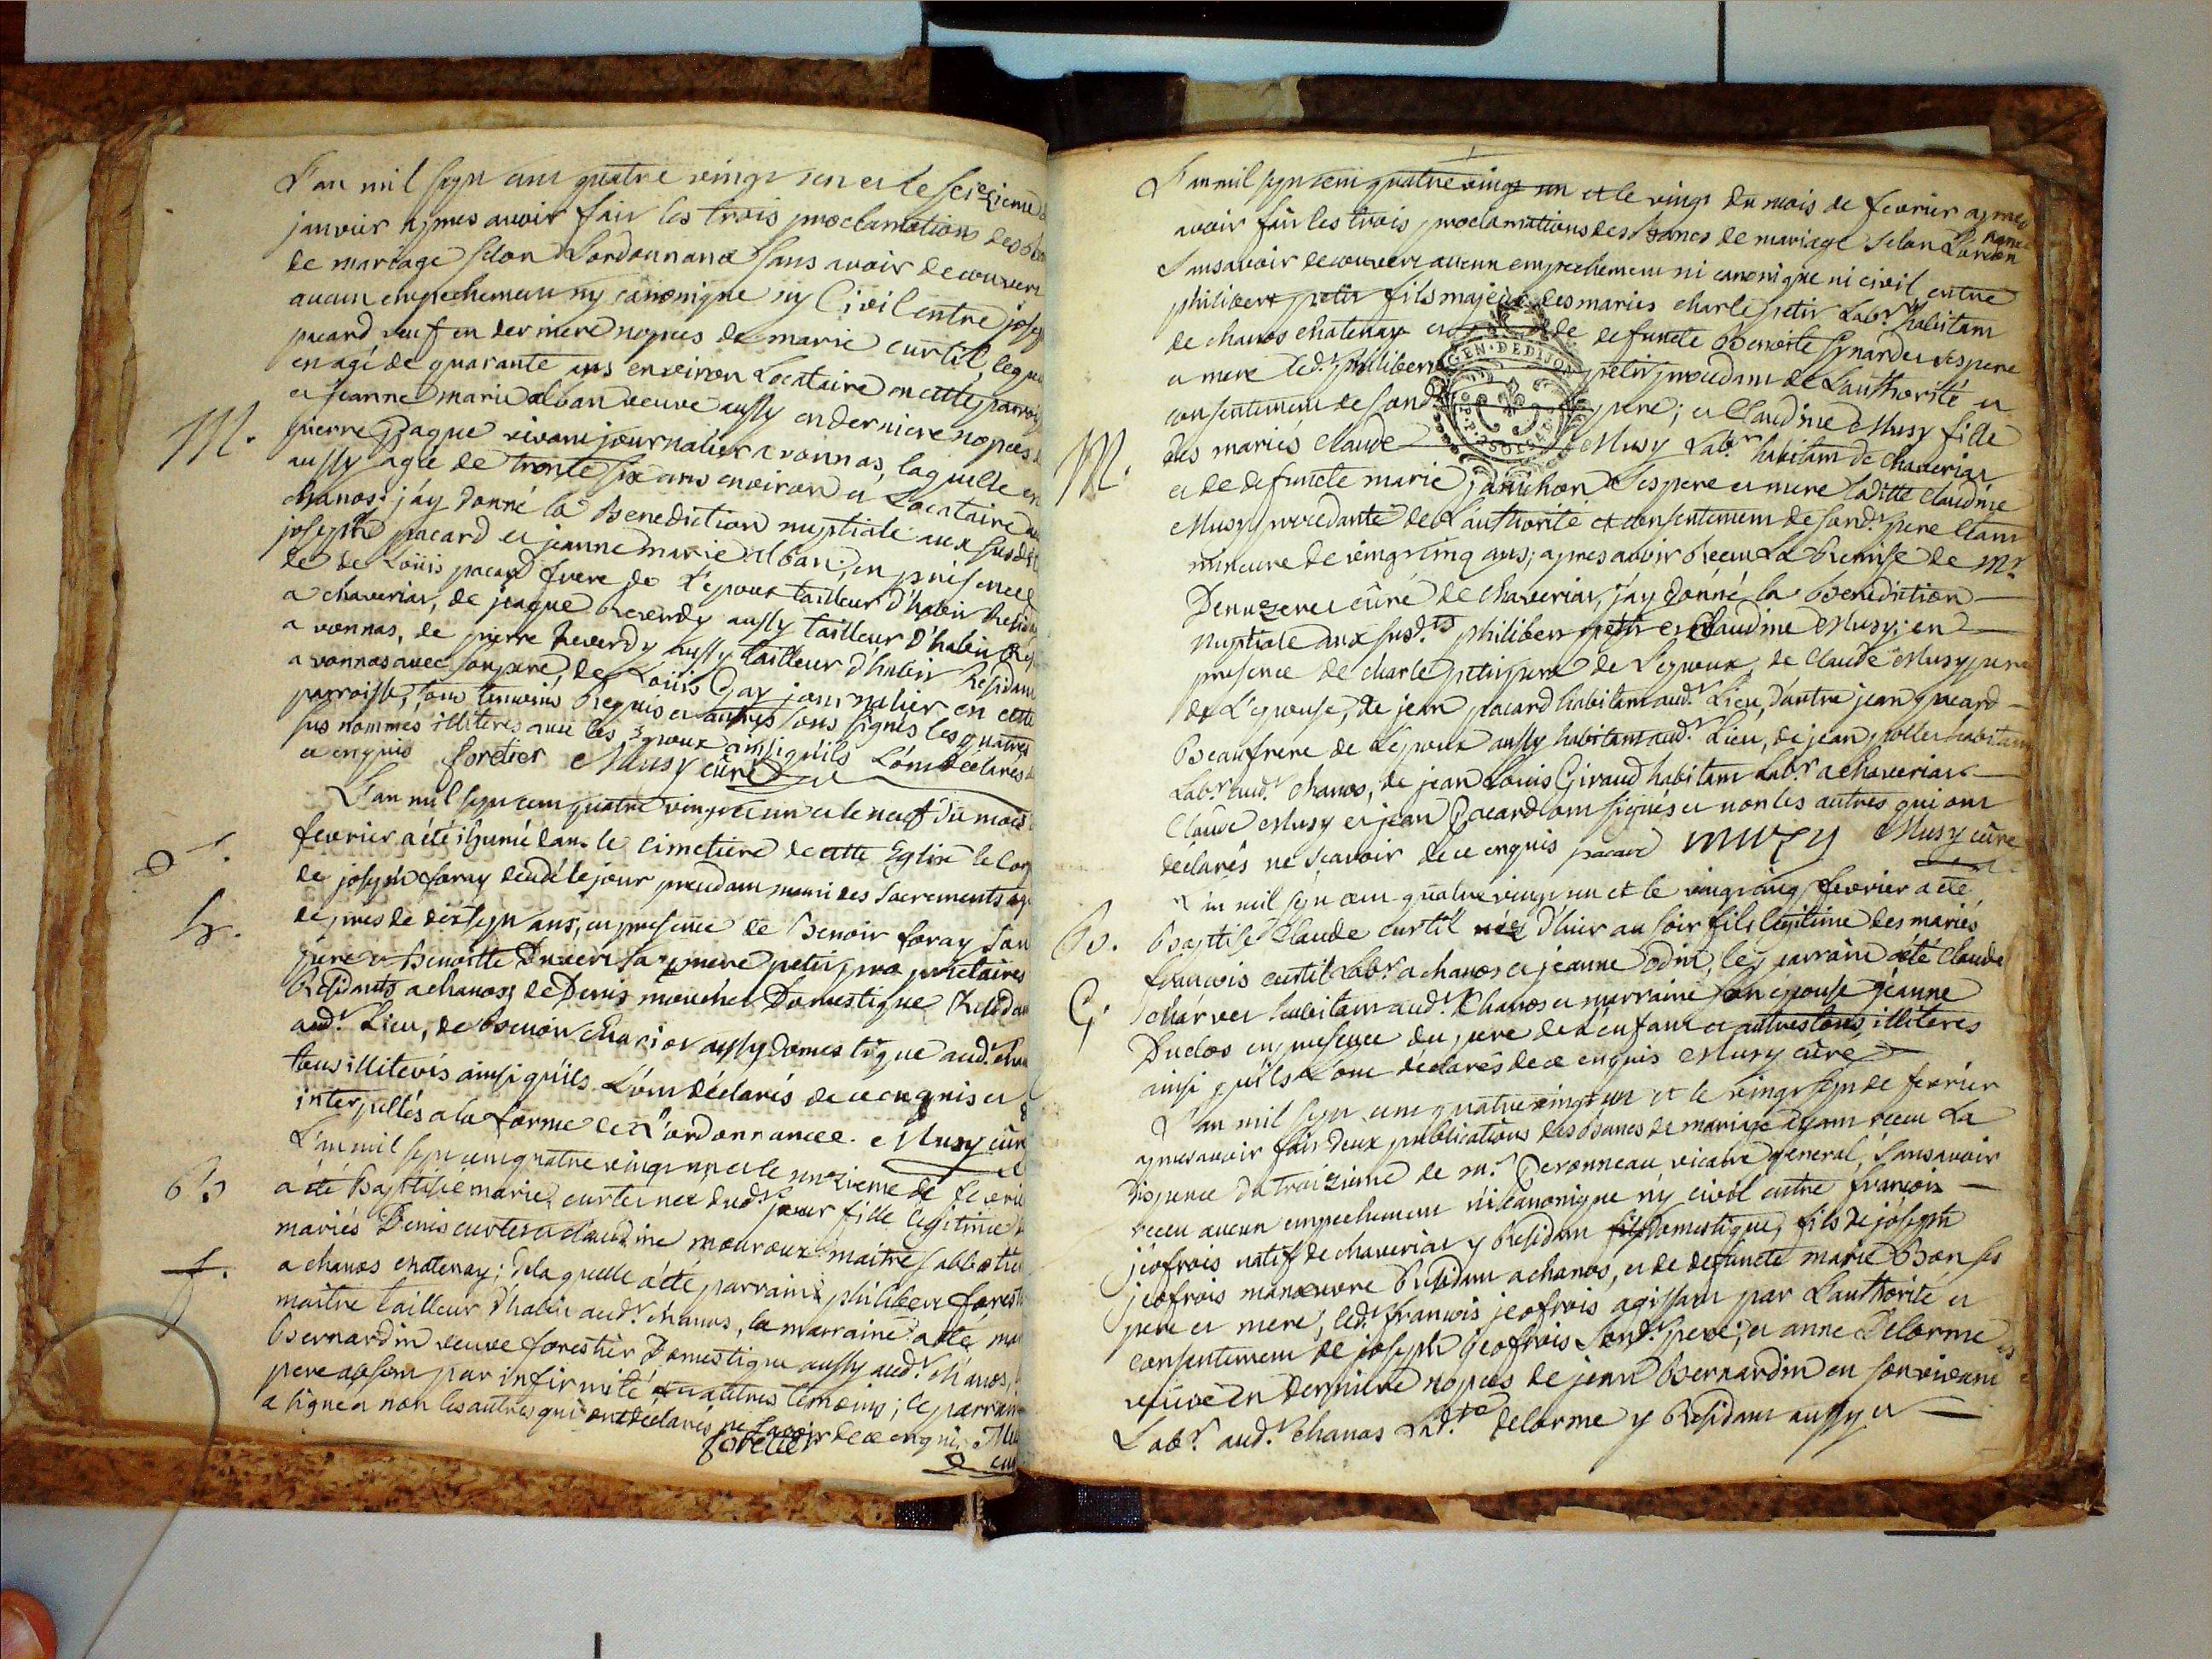 L'an mil sept cent quatre vingt un et le seizieme
janvier apres avoir fait les trois proclamations des
de mariage selon L'ordonnance sans avoir decouvert
aucun empechement ny canonique ny Civil entre joseph
pacard veuf en derniere nopces de marie curtil, lequel
en agé de quarante ans environ Locataire en cette parroisse
et jeanne marie alban veuve aussy en derniere nopces
pierre Pagne vivant journalier a vonnas, laquelle en
M. aussy agée de trente six ans environ et Locataire
chanos; j'ay donné la Benediction nuptiale aux susdits
joseph pacard et jeanne marie alban, en presence
de de Loüis pacard frere de L'epoux tailleur d'habit Residant
a chaveriat, de jaque Reverdy aussy tailleur d'habit
a vonnas, de pierre Reverdy aussy tailleur d'habit Residant
a vonnas avec son pere, de Loüis Gay journalier en cette
parroisse, tous temoins Requis et autres sous signés les quatres
sus nommés illiterés avec les Epoux ainsi qu'ils L'ont declarés
et enquis foretier Musy curé
L'an mil sept cent quatre vingt et un et le neuf du mois
fevrier a été ihumé dans le cimetiere de cette Eglise le corps
de joseph foray decedé le jour precedant muni des Sacrements
h. de pres de dix sept ans, en presence de Benoit foray son
pere et Benoitte Duvert sa mere petits proprietaires
Residants a chanos, de Denis moucher Domestique Residant
aud.t Lieu, de Benoit Chariot aussy domestique aud.t
tous illiterés ainsi qu'ils L'ont declarés de ce enquis et
interpellés a la forme de L'ordonnance. Musy curé
L'an mil sept cent quatre vingt un et le unzieme de fevrier
B. a été Baptisée marie curtet née dud.t jour fille legitime
mariés Denis curtet et claudine mouroux maitre sabbotier
a chanos chatenay; de laquelle a été parrain philibert forestier
f. maitre tailleur d'habit aud.t chanos, la marraine a été
Bernardin veuve forestier Domestique aussy aud.t chanos,
pere absent par infirmité et autres temoins; le parrain
a signé et non les autres qui ont declarés ne scavoir de ce enquis
foretier
L'an mil sept cent quatre vingt un et le vingt du mois de fevrier apres
avoir fait les trois proclamations des Bancs de mariage selon L'ordonnance
Sans avoir decouvert aucun empechement ni canonique ni civil entre
philibert petit fils majeur des mariés charle petit Lab.r habitant
de chanos chatenay et de defuncte Benoite ses pere
et mere led.t philibert petit procedant de L'authorité et
consentement de sond.t pere; et Claudine Musy fille
M. des mariés Claude Musy Lab.r habitant de chaveriat
et de defuncte marie janichon ses pere et mere laditte claudine
Musy procedante de L'authorité et consentement de sond.t pere étant
mineure de vingt cinq ans; apres avoir Receu La Remise de M.r
curé de Chaveriat, j'ay donné la Benediction
Nuptiale aux susd.ts philibert petit et Claudine Musy; en
presence de charle petit pere de L'epoux, de Claude Musy pere
de L'epouse, de jean pacard habitant aud.t Lieu, d'autre jean pacard
Beaufrere de L'epoux aussy habitant aud.t Lieu, de jean pollet habitant
Lab.r aud.t chanos, de jean Louis Giraud habitant Lab.r a chaveriat
Claude Musy et jean Pacard ont signés et non les autres qui ont
declarés ne scavoir de ce enquis pacard muzy Musy curé
L'an mil sept cent quatre vingt un et le vingt cinq fevrier a été
B. Baptisé Claude curtil né d'hier au soir fils legitime des mariés
francois curtil Lab.r a chanos et jeanne odin, le parrain a été Claude
C. charvet habitant aud.t Chanos et marraine son epouse jeanne
Duclos en presence du pere de L'enfant et autres tous illiterés
ainsi qu'ils L'ont declarés de ce enquis Musy curé
L'an mil sept cent quatre vingt un et le vingt sept de fevrier
apres avoir fait deux publications des Bancs de mariage ayant receu La
dispence du troizieme de M.r Peronneau vicaire general, Sans avoir
receu aucun empechement ni canonique ny civil entre françois
jeofrois natif de chaveriat y Residant domestique, fils de joseph
jeofrois manoeuvre Residant a chanos, et de defuncte marie Bon ses
pere et mere, led.t francois jeofrois agissant par L'authorité et
consentement de joseph jeofrois sond.t pere; et anne Delorme
veuve en derniere nopces de jean Bernardin en son vivant
Lab.r aud.t chanos Lad.te delorme y Residant aussy et